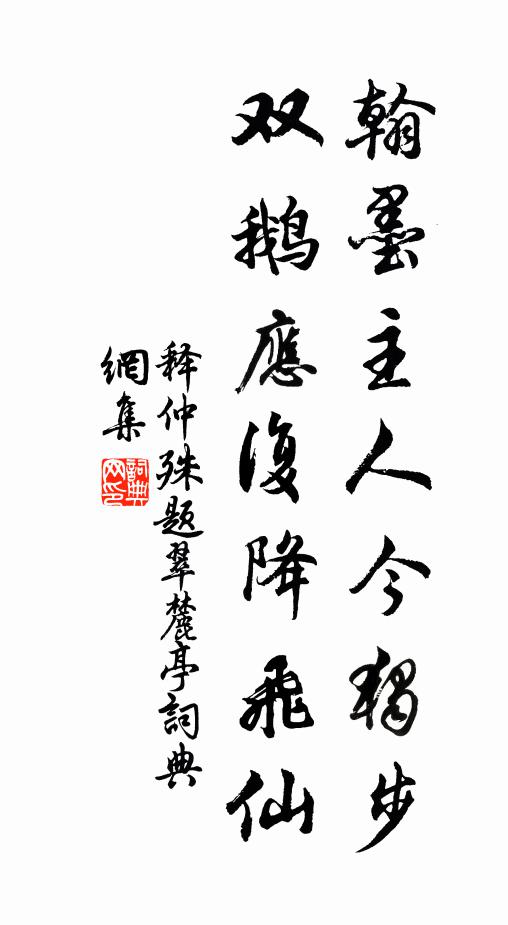 翰墨主人今獨步
双鹅應復降飛仙
释仲殊题翠麓亭詞典
網集
詞典网印